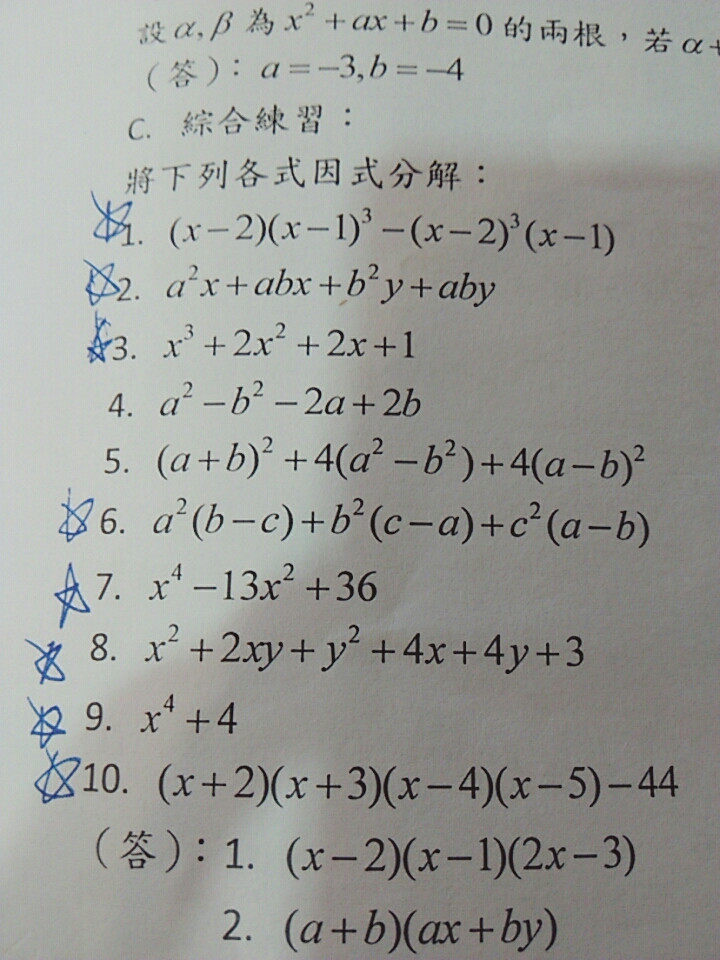 設 α, β 為 x² + ax + b = 0 的兩根，若 α+
(答)：a = −3, b = −4
C. 綜合練習：
將下列各式因式分解：
1. (x−2)(x−1)³ −(x−2)³(x−1)
2. a²x+abx+b²y+aby
3. x³ +2x² +2x+1
4. a² −b² −2a+2b
5. (a+b)² +4(a² −b²)+4(a−b)²
6. a²(b−c)+b²(c−a)+c²(a−b)
7. x⁴ −13x² +36
8. x² +2xy+y² +4x+4y+3
9. x⁴ +4
10. (x+2)(x+3)(x−4)(x−5)−44
(答)：1. (x−2)(x−1)(2x−3)
2. (a+b)(ax+by)